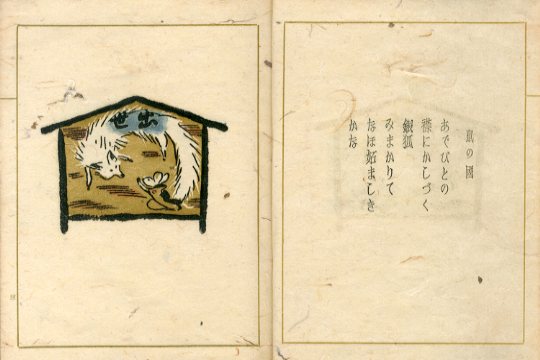 鼠の國
あでびとの
襟にかしづく
銀狐
みまかりて
なほ妬ましき
かな
出世